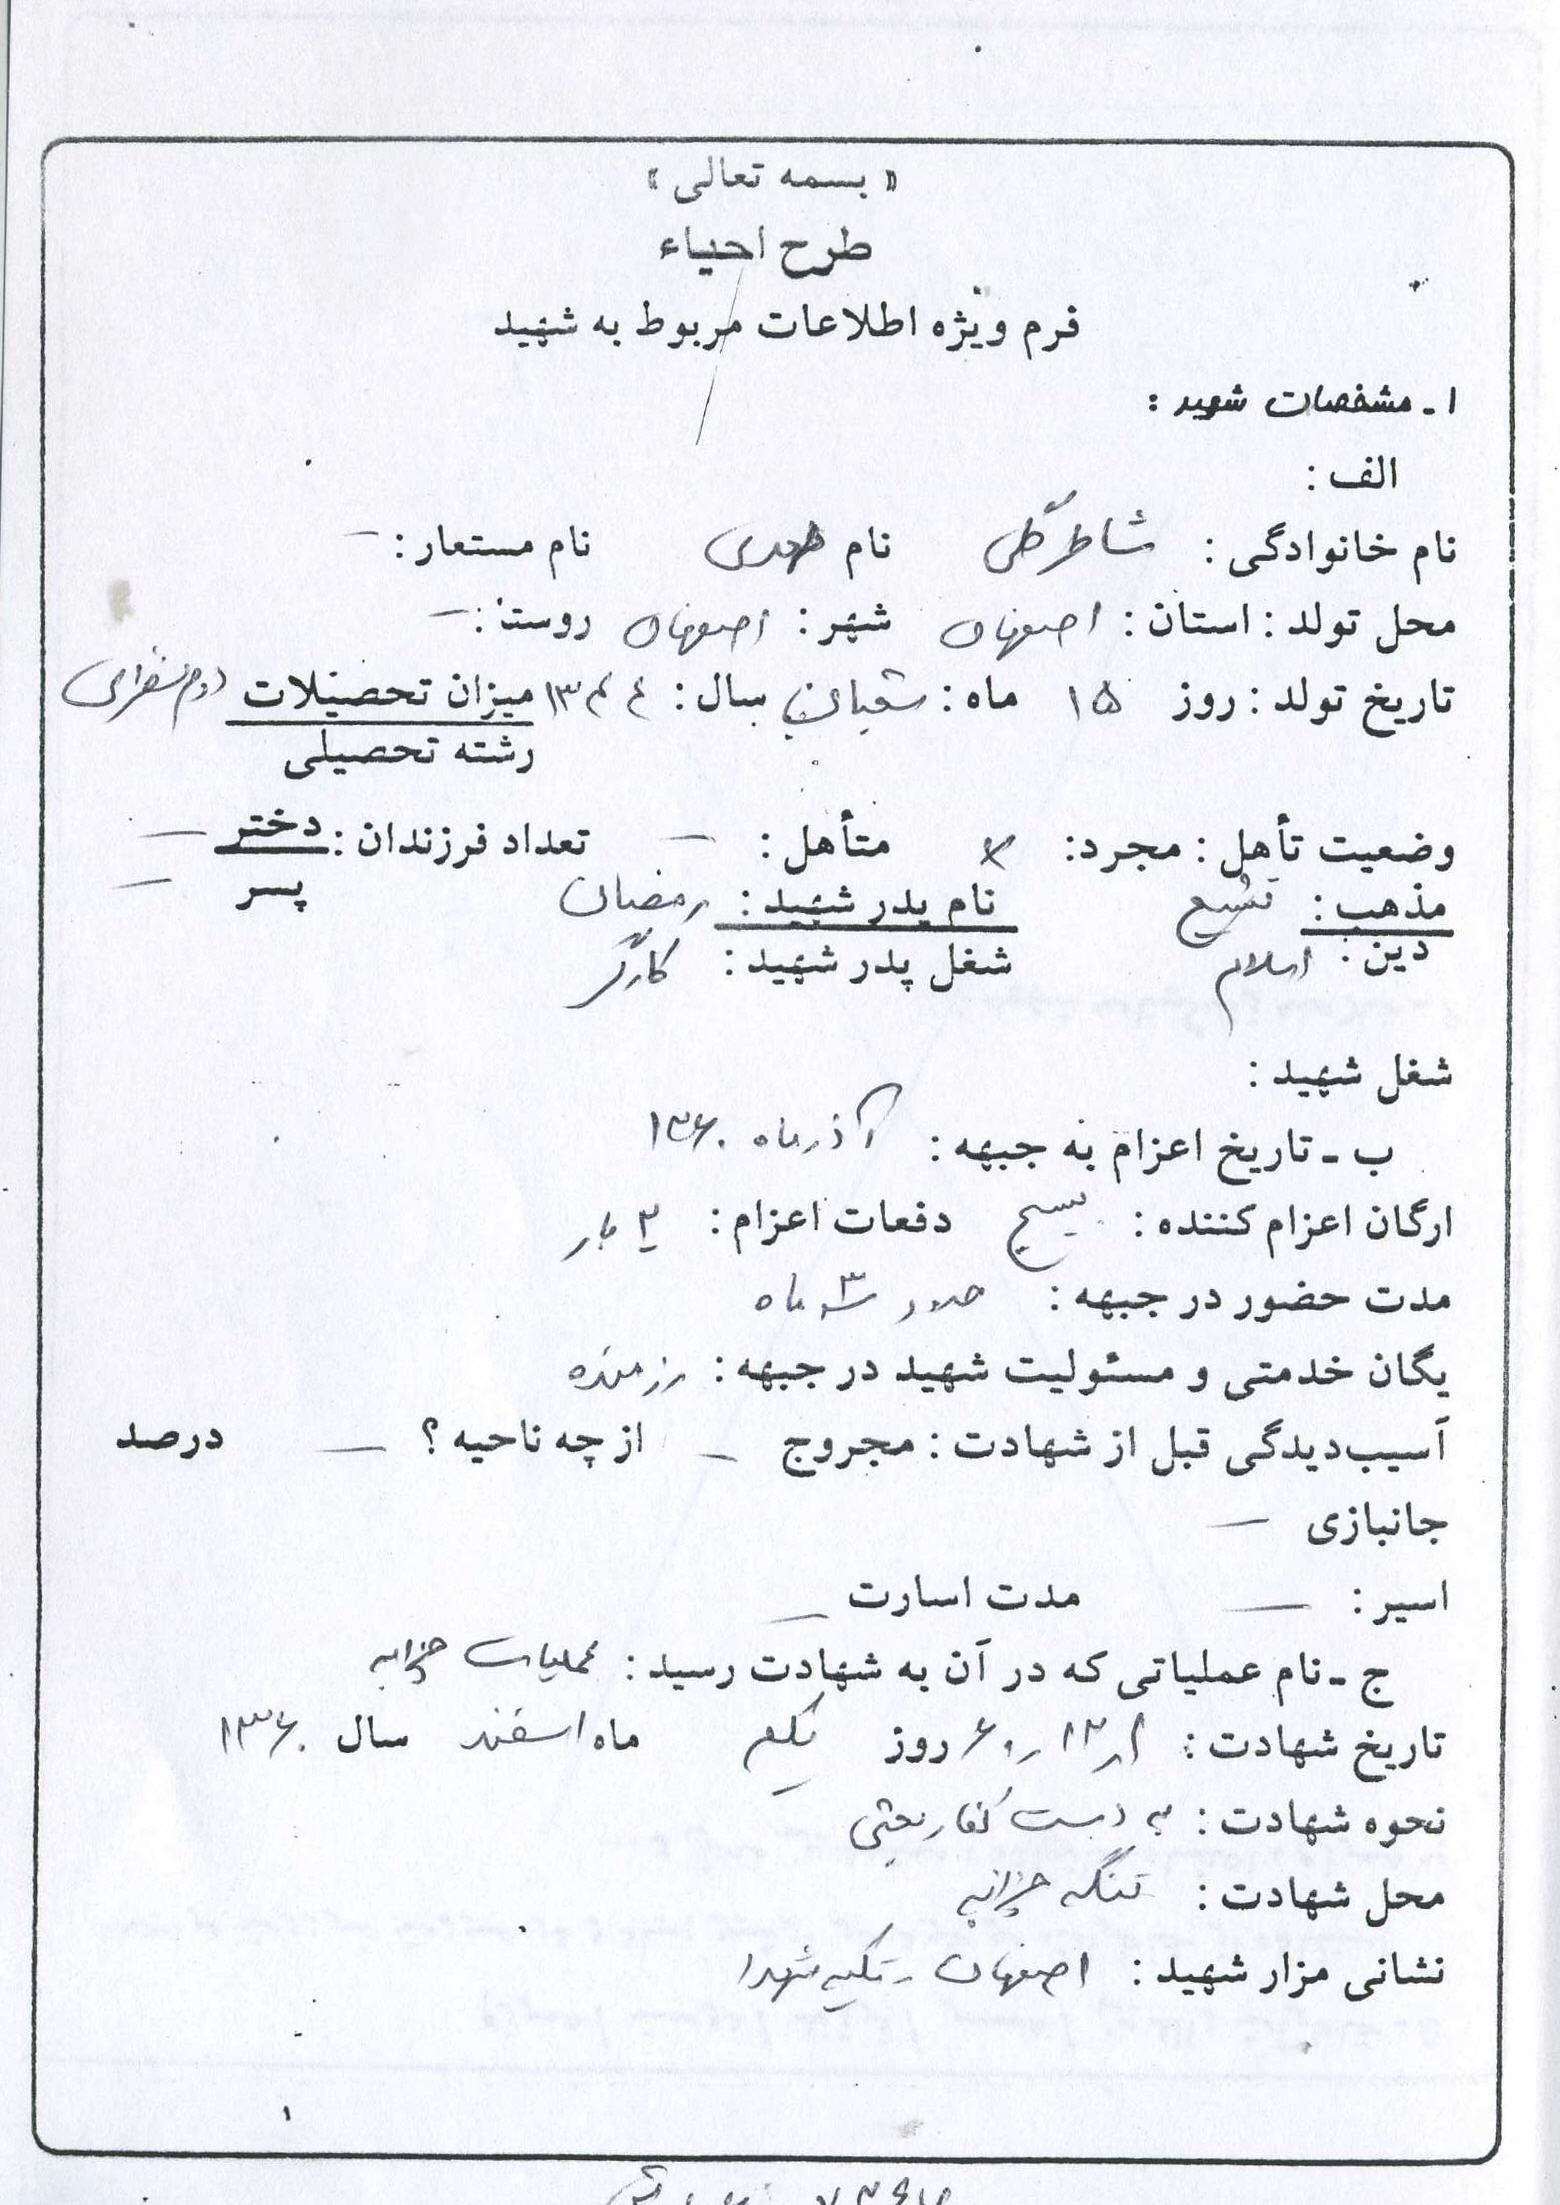 « بسمه تعالی »
طرح احیاء
فرم ویژه اطلاعات مربوط به شهید
۱ ـ مشخصات شهید :
الف :
نام خانوادگی : شاطر گلی نام مهدی نام مستعار : —
محل تولد : استان : اصفهان شهر : اصفهان روستا : —
تاریخ تولد : روز ۱۵ ماه : شعبان سال : ۱۳۴۴ میزان تحصیلات دوم نظری
رشته تحصیلی
وضعیت تأهل : مجرد : × متأهل : — تعداد فرزندان : دختر —
پسر —
مذهب : تشیع نام پدر شهید : رمضان
دین : اسلام شغل پدر شهید : کارگر
شغل شهید :
ب ـ تاریخ اعزام به جبهه : آذر ماه ۱۳۶۰
ارگان اعزام کننده : بسیج دفعات اعزام : بار
مدت حضور در جبهه : حدود ۳ ماه
یگان خدمتی و مسئولیت شهید در جبهه : رزمنده
آسیب‌دیدگی قبل از شهادت : مجروح — از چه ناحیه ؟ — درصد
جانبازی —
اسیر : — مدت اسارت —
ج ـ نام عملیاتی که در آن به شهادت رسید : عملیات چزابه
تاریخ شهادت : ۱ر۱۲ر۶۰ روز یکم ماه اسفند سال ۱۳۶۰
نحوه شهادت : به دست کفار بعثی
محل شهادت : تنگه چزابه
نشانی مزار شهید : اصفهان ـ تکیه شهدا
۱